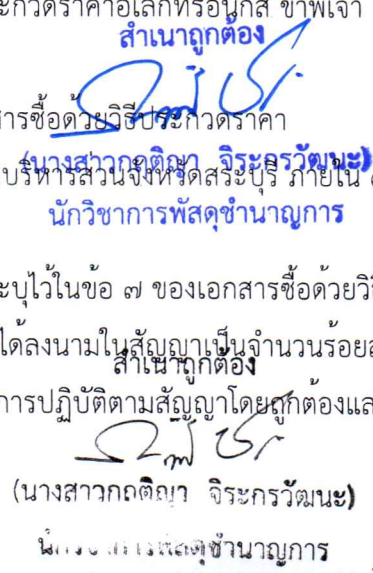 ะกวดราคาอิเล็กทรอนิกส์ ข้าพเจ้า
สำเนาถูกต้อง
สารซื้อด้วยวิธีประกวดราคา
(นางสาวกฤติญา จิระกรวัฒนะ)
บริหารส่วนจังหวัดสระบุรี ภายใน
นักวิชาการพัสดุชำนาญการ
ะบุไว้ในข้อ ๗ ของเอกสารซื้อด้วยวิธี
ได้ลงนามในสัญญาเป็นจำนวนร้อยล
สำเนาถูกต้อง
การปฏิบัติตามสัญญาโดยถูกต้องและ
(นางสาวกฤติญา จิระกรวัฒนะ)
นักวิชาการพัสดุชำนาญการ